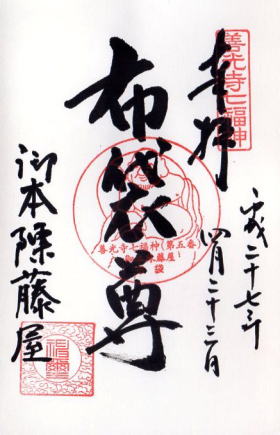 善光寺七福神
奉拝
平成二十七年
四月二十三日
布袋尊
善光寺七福神(第五番)
藤屋
袋
御本陳藤屋